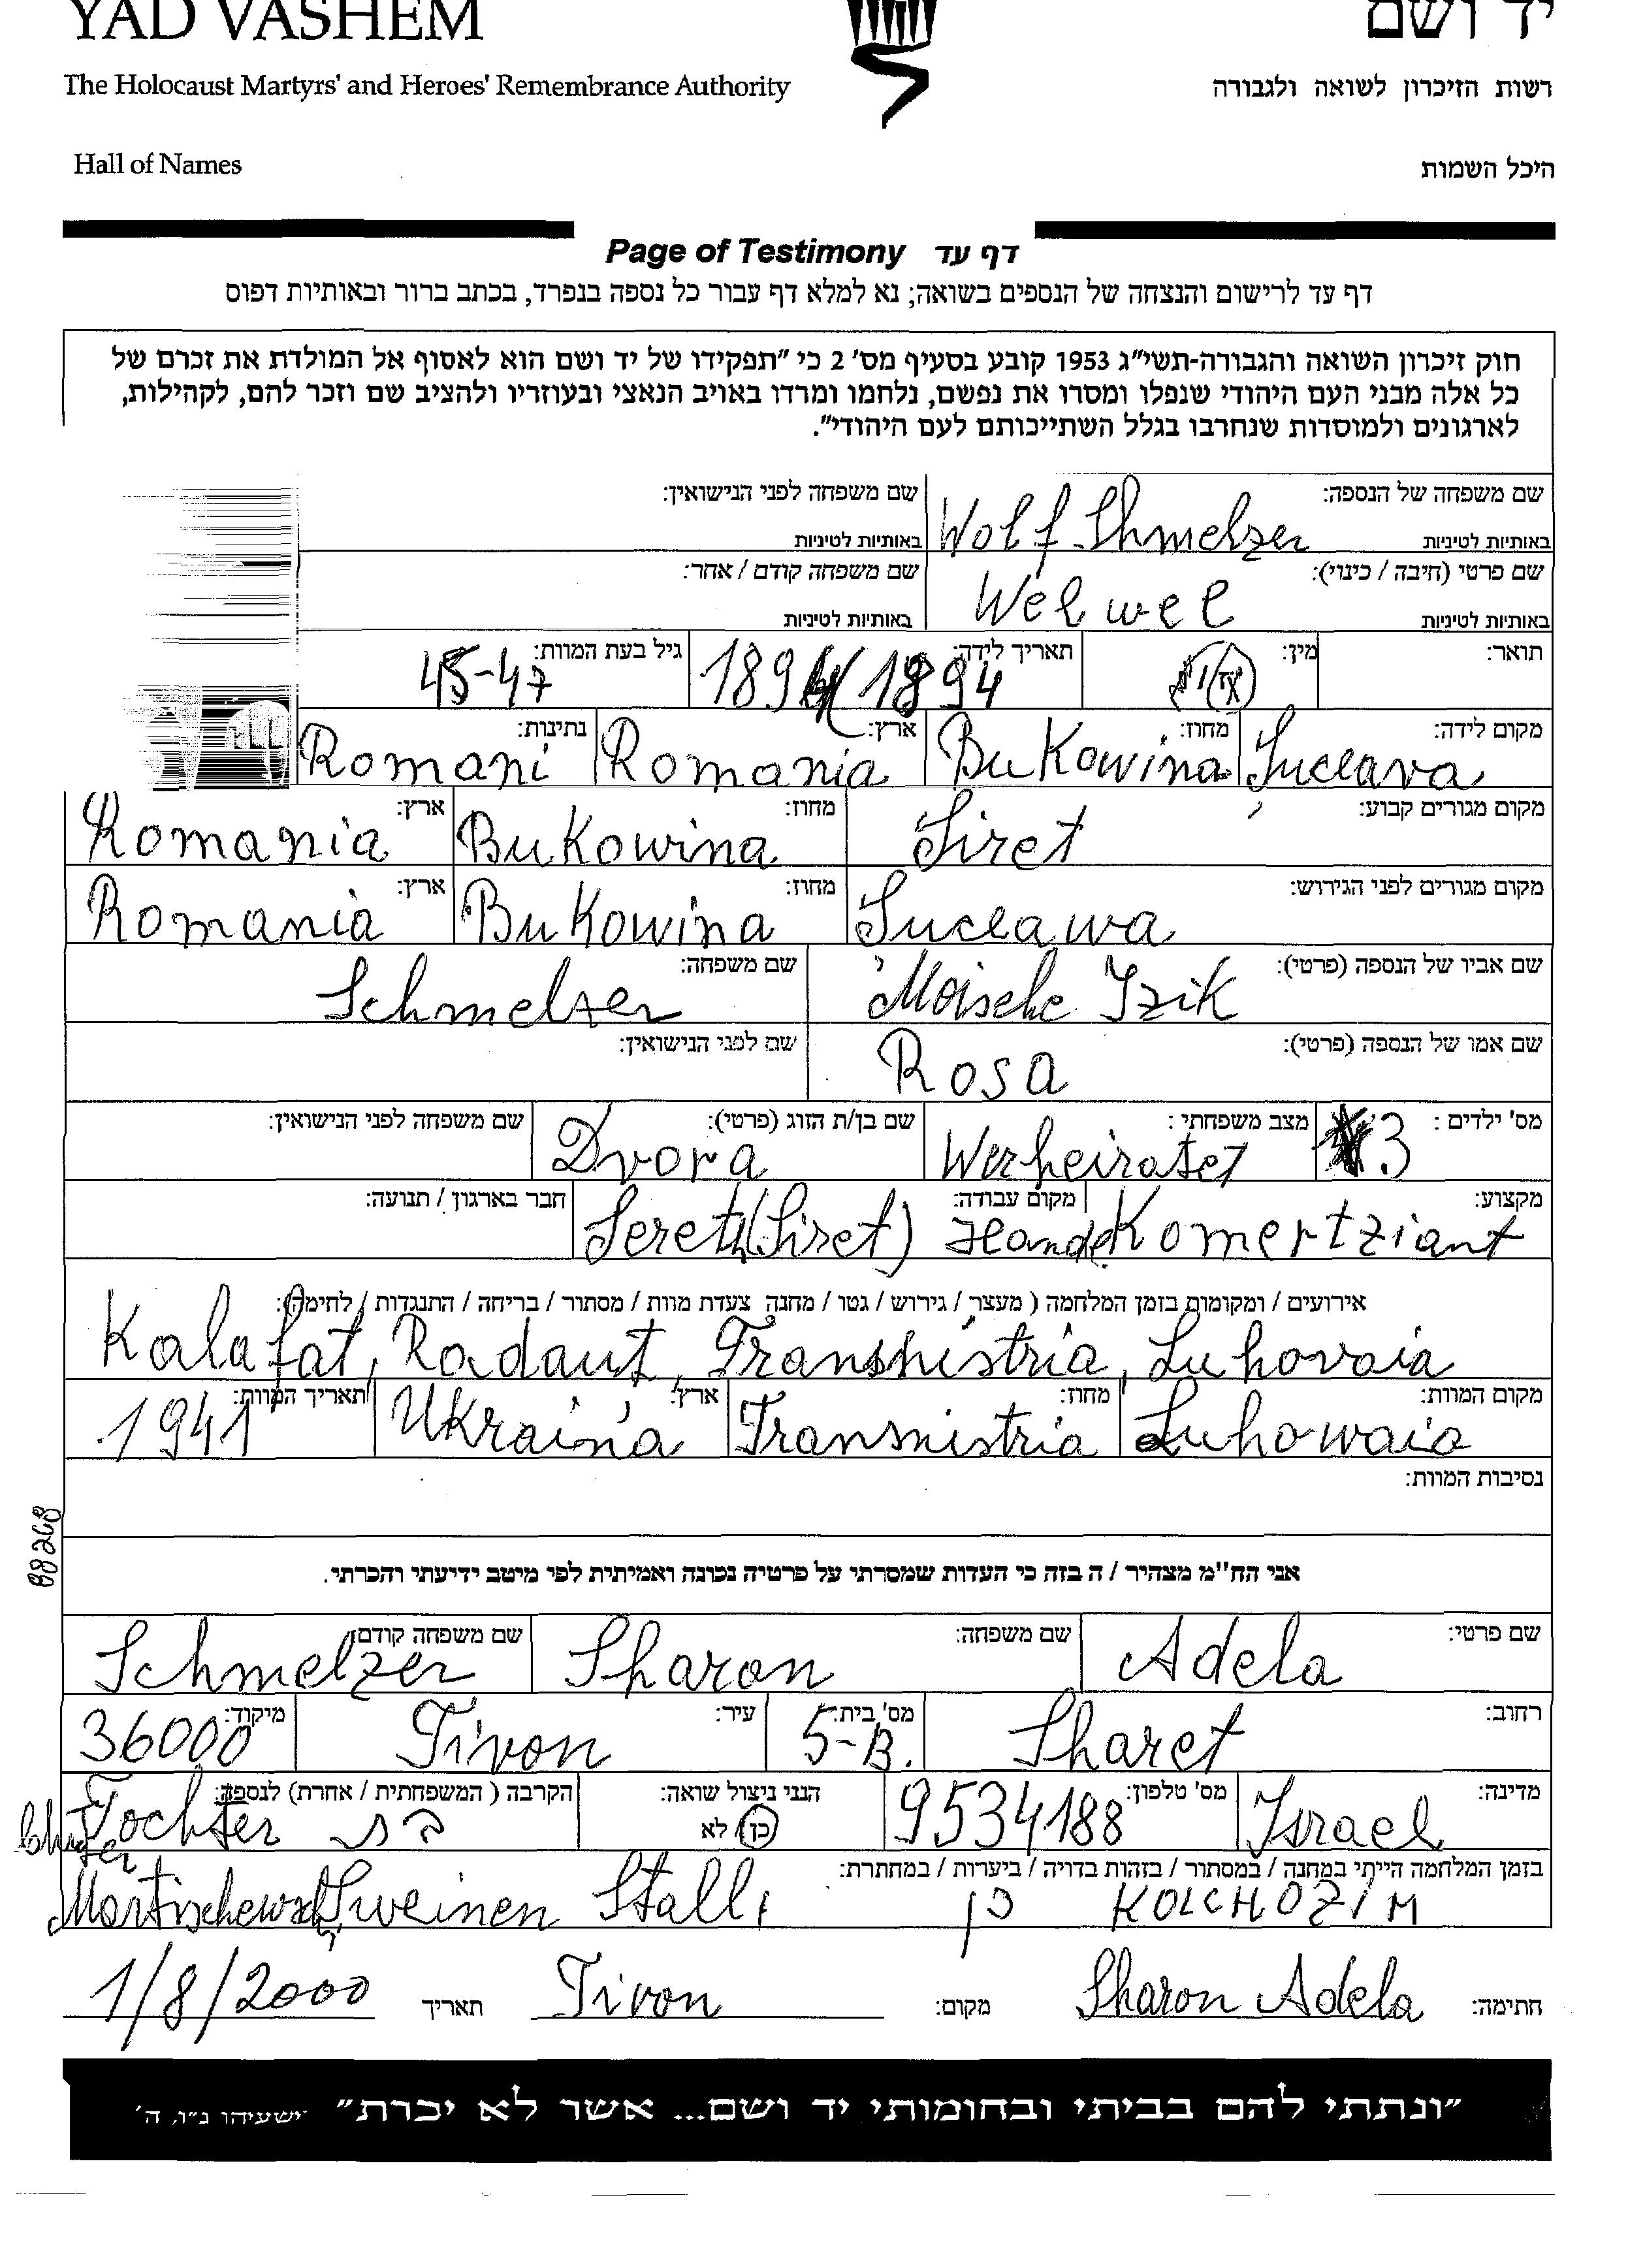 YAD VASHEM יד ושם
The Holocaust Martyrs' and Heroes' Remembrance Authority רשות הזיכרון לשואה ולגבורה
Hall of Names היכל השמות
Page of Testimony דף עד
דף עד לרישום והנצחה של הנספים בשואה; נא למלא דף עבור כל נספה בנפרד, בכתב ברור ובאותיות דפוס
חוק זיכרון השואה והגבורה-תשי״ג 1953 קובע בסעיף מס׳ 2 כי ״תפקידו של יד ושם הוא לאסוף אל המולדת את זכרם של
כל אלה מבני העם היהודי שנפלו ומסרו את נפשם, נלחמו ומרדו באויב הנאצי ובעוזריו ולהציב שם וזכר להם, לקהילות,
לארגונים ולמוסדות שנחרבו בגלל השתייכותם לעם היהודי״.
שם משפחה של הנספה: Wolf Shmelzer שם משפחה לפני הנישואין:
באותיות לטיניות באותיות לטיניות
שם פרטי (חיבה / כינוי): Welwel שם משפחה קודם / אחר:
באותיות לטיניות באותיות לטיניות
תואר: מין: תאריך לידה: 1894/1894 גיל בעת המוות: 45-47
מקום לידה: Suceava מחוז: Bukowina ארץ: Romania נתינות: Romani
מקום מגורים קבוע: Siret מחוז: Bukowina ארץ: Romania
מקום מגורים לפני הגירוש: Suceawa מחוז: Bukowina ארץ: Romania
שם אביו של הנספה (פרטי): Moische Izik שם משפחה: Schmelzer
שם אמו של הנספה (פרטי): Rosa שם לפני הנישואין:
מס׳ ילדים : 3 מצב משפחתי : Werheiratet שם בן/ת הזוג (פרטי): Dvora שם משפחה לפני הנישואין:
מקצוע: Komertziant Handel מקום עבודה: Sereth (Siret) חבר בארגון / תנועה:
אירועים / ומקומות בזמן המלחמה ( מעצר / גירוש / גטו / מחנה צעדת מוות / מסתור / בריחה / התנגדות / לחימה):
Kalafat, Radaut, Transnistria, Luhovaia
מקום המוות: Luhowaia מחוז: Transnistria ארץ: Ukraina תאריך המוות: 1941
נסיבות המוות:
88268
אני הח״מ מצהיר / ה בזה כי העדות שמסרתי על פרטיה נכונה ואמיתית לפי מיטב ידיעתי והכרתי.
שם פרטי: Adela שם משפחה: Sharon שם משפחה קודם: Schmelzer
רחוב: Sharet מס׳ בית: 5-B. עיר: Tivon מיקוד: 36000
מדינה: Israel מס׳ טלפון: 9534188 הנני ניצול שואה: כן / לא הקרבה ( המשפחתית / אחרת) לנספה: בת Tochter
בזמן המלחמה הייתי במחנה / במסתור / בזהות בדויה / ביערות / במחתרת:
KOLCHOZIM כן Sweinen Stall,
חתימה: Sharon Adela מקום: Tivon תאריך 1/8/2000
״ונתתי להם בביתי ובחומותי יד ושם... אשר לא יכרת״ ישעיהו נ״ו, ה׳